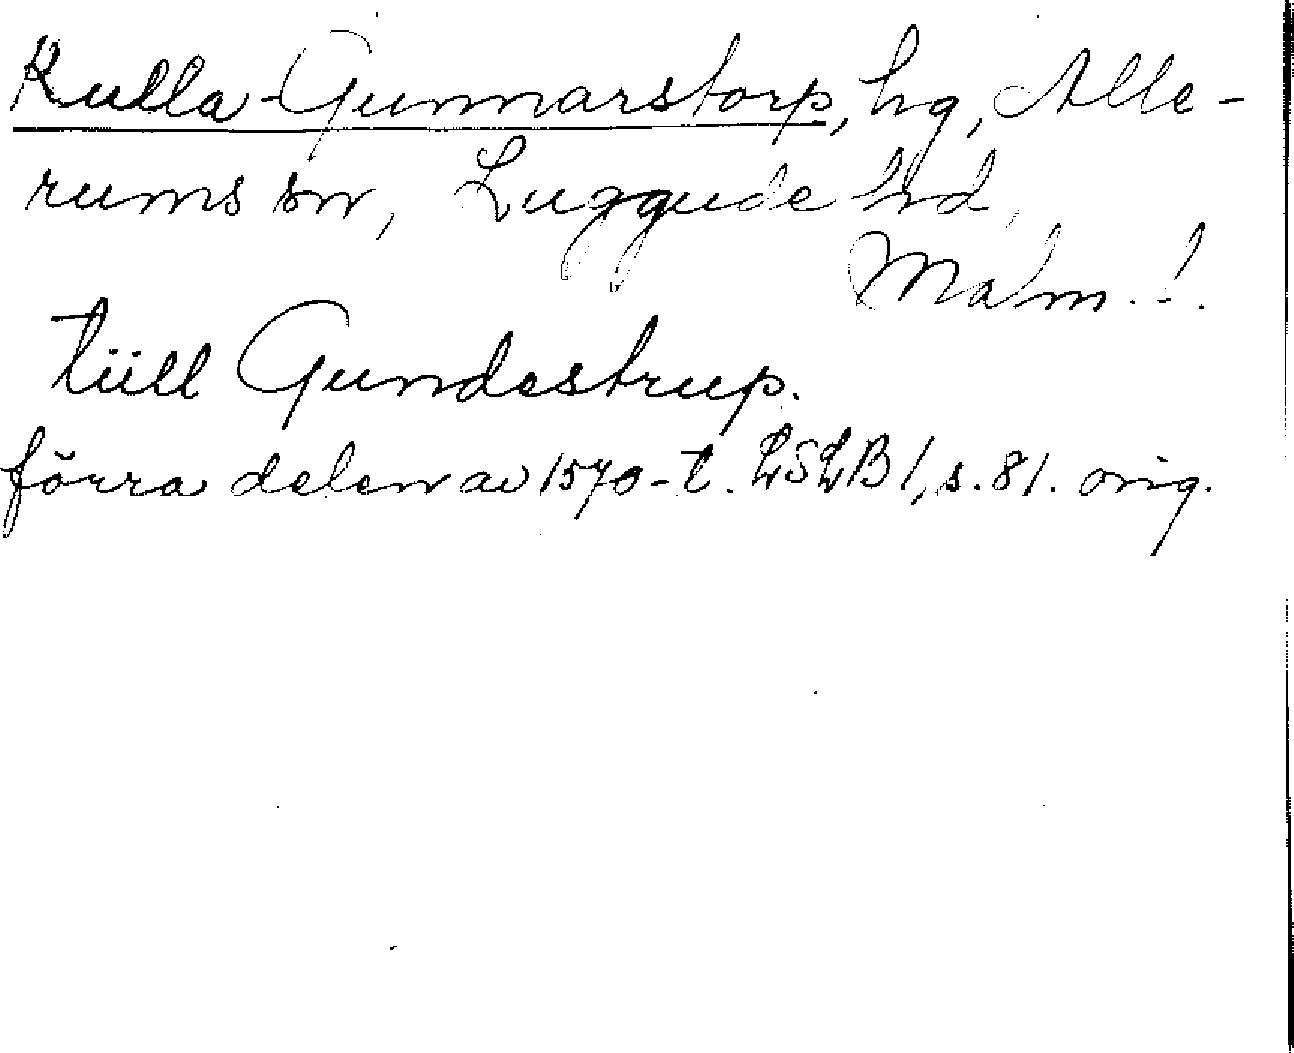 Kulla-Gunnarstorp, hg, Alle-
rums sn, Luggude hd,
Malm. l.
tiill Gundestrup.
förra delen av 1570-t. LSLB 1, s. 81. orig.